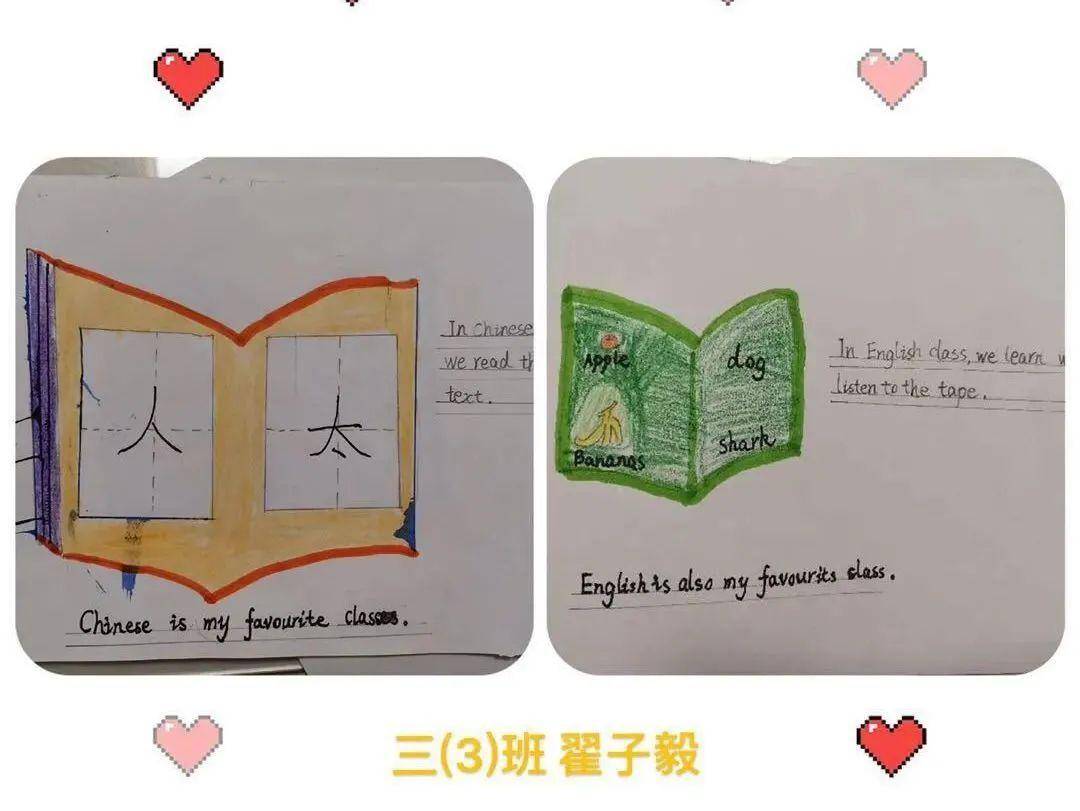 In Chinese
we read th
text.
人 太
Chinese is my favourite class.
Apple
Bananas
dog
shark
In English class, we learn w
listen to the tape.
English is also my favourits class.
三(3)班 翟子毅